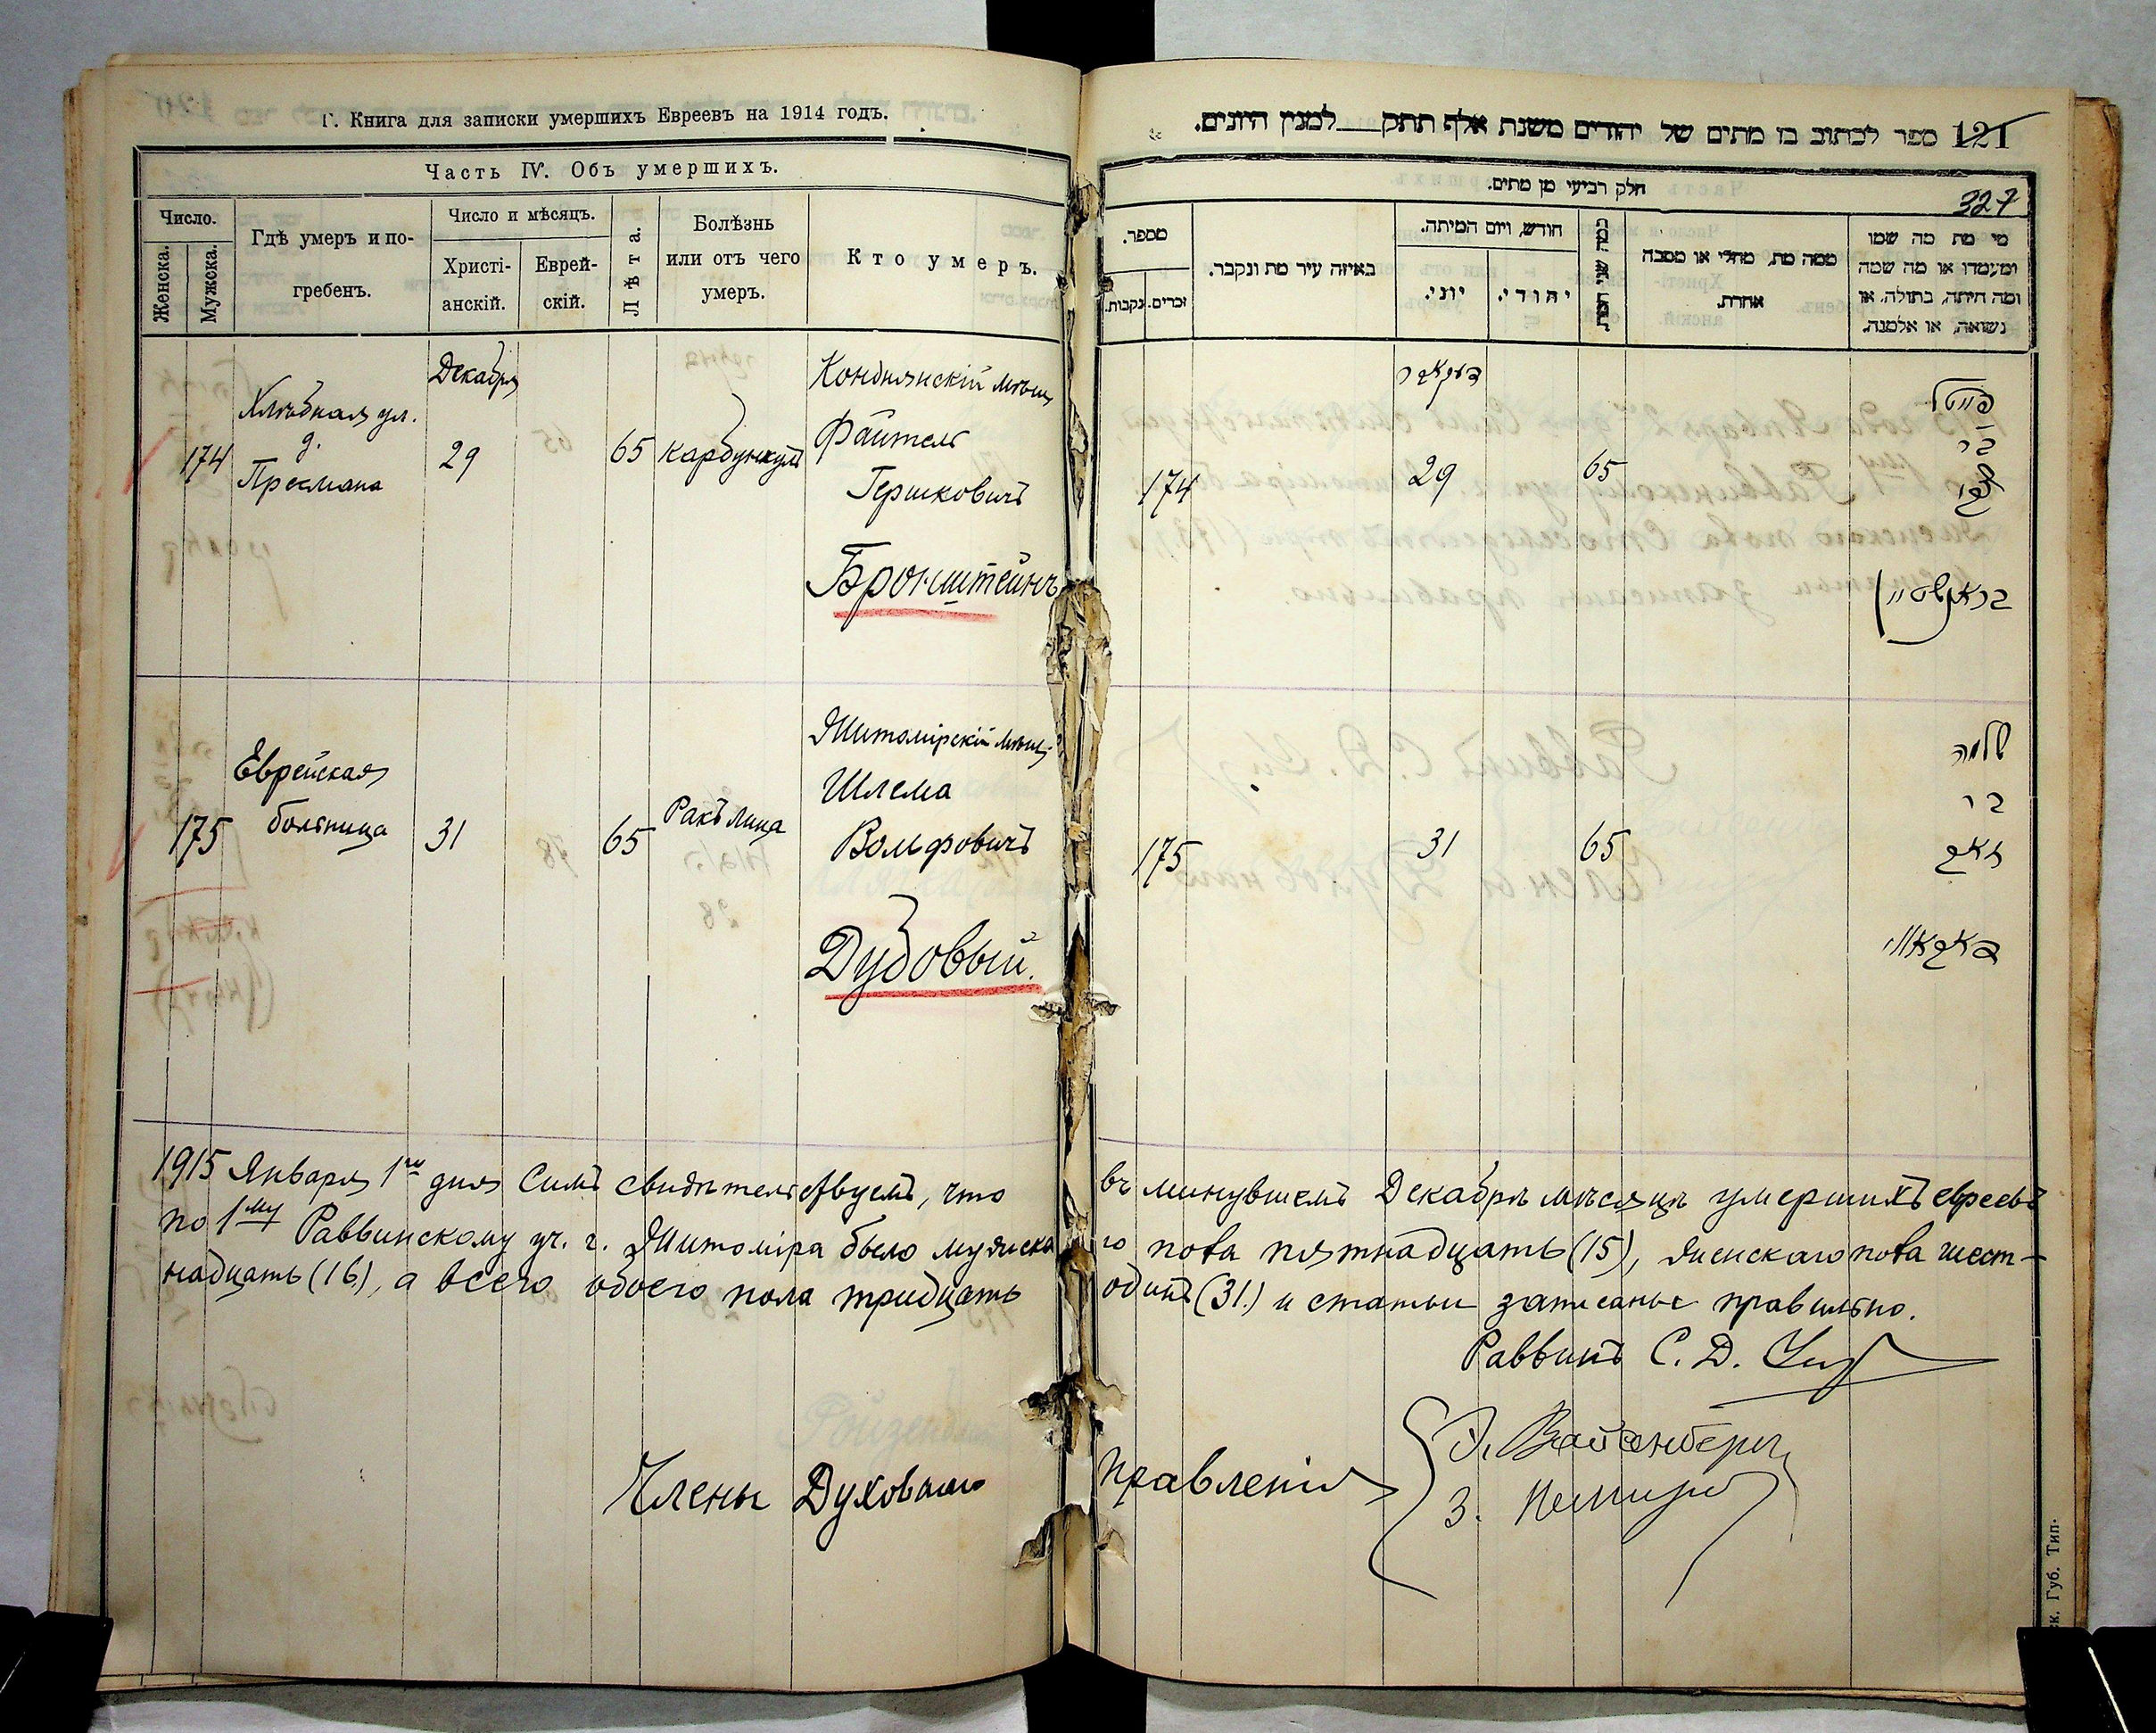 Г. Книга для записки умершихъ Евреевъ на 1914 годъ.
Часть IV. Объ умершихъ.
Число.
Женска.
Мужска.
Гдѣ умеръ и по-
гребенъ.
Число и мѣсяцъ.
Христі-
анскій.
Еврей-
скій.
Лѣта.
Болѣзнь
или отъ чего
умеръ.
Кто умеръ.
174
Хлѣбная ул.
д.
Пресмана
Декабря
29
65
Карбункулъ
мѣщ
Файтель
Гершковичъ
Бронштейнъ
175
Еврейская
больница
31
65
Ракъ лица
Житомірскій мѣщ.
Шлема
Вольфовичъ
Дубовый.
1915 Января 1го дня Симъ свидѣтельствуемъ, что
по 1му Раввинскому уч. г. Житоміра было мужска
надцать (16), а всего обоего пола тридцать
Члены Духовнаго
121 ספר לכתוב בו מתים של יהודים משנת אלף תתק___למנין היונים.
327
חלק רביעי מן מתים.
מספר.
נקבות.
זכרים.
באיזה עיר מת ונקבר.
חודש, ויום המיתה.
יוני.
יהודי.
ממה מת, מחלי או מסבה
אחרת.
מי מת מה שמו
ומעמדו או מה שמה
ומה היתה, בתולה, או
נשואה, או אלמנה.
174
דעקאבר
29
65
פייטל
בר
צבי
בראנשטיין
175
31
65
שלמה
בר
זאב
דאבאווי
въ минувшемъ Декабрѣ мѣсяцѣ умершихъ евреевъ
го пола пятнадцать (15), женскаго пола шест-
одинъ (31.) и статьи записаны правильно.
Раввинъ С. Д.
Правленія
Э. Вайсенбергъ
З.
к. Губ. Тип.